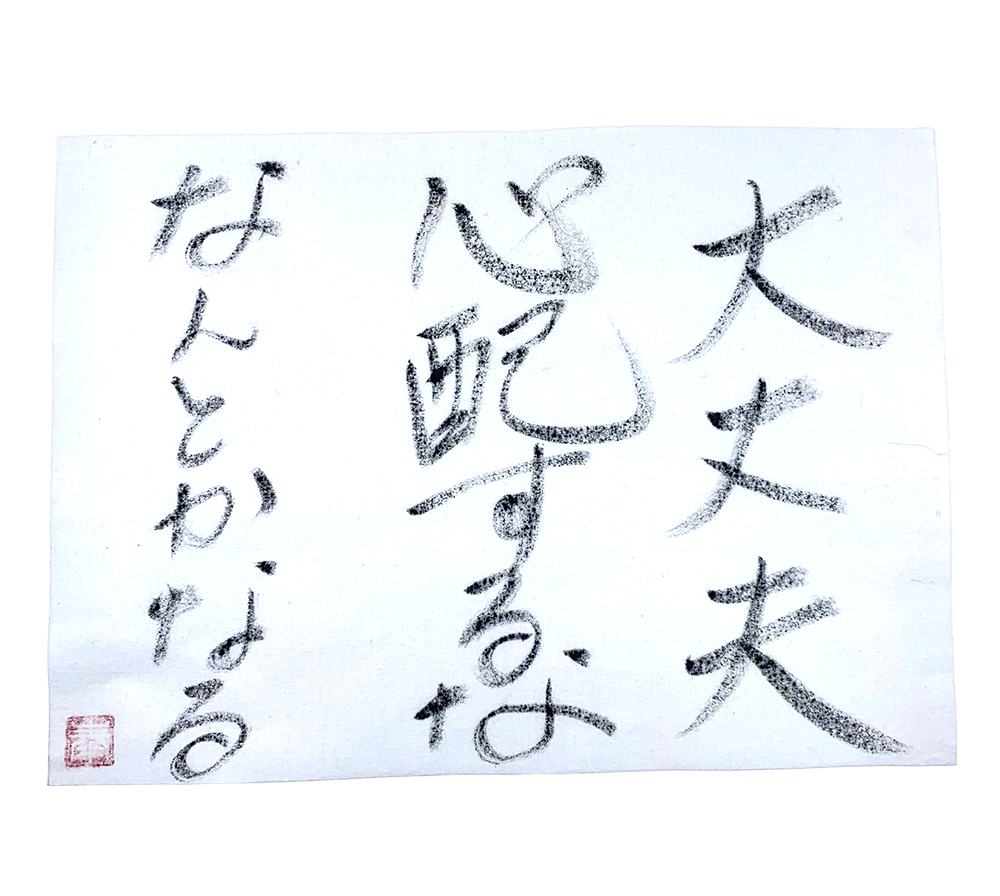 大丈夫
心配するな
なんとかなる